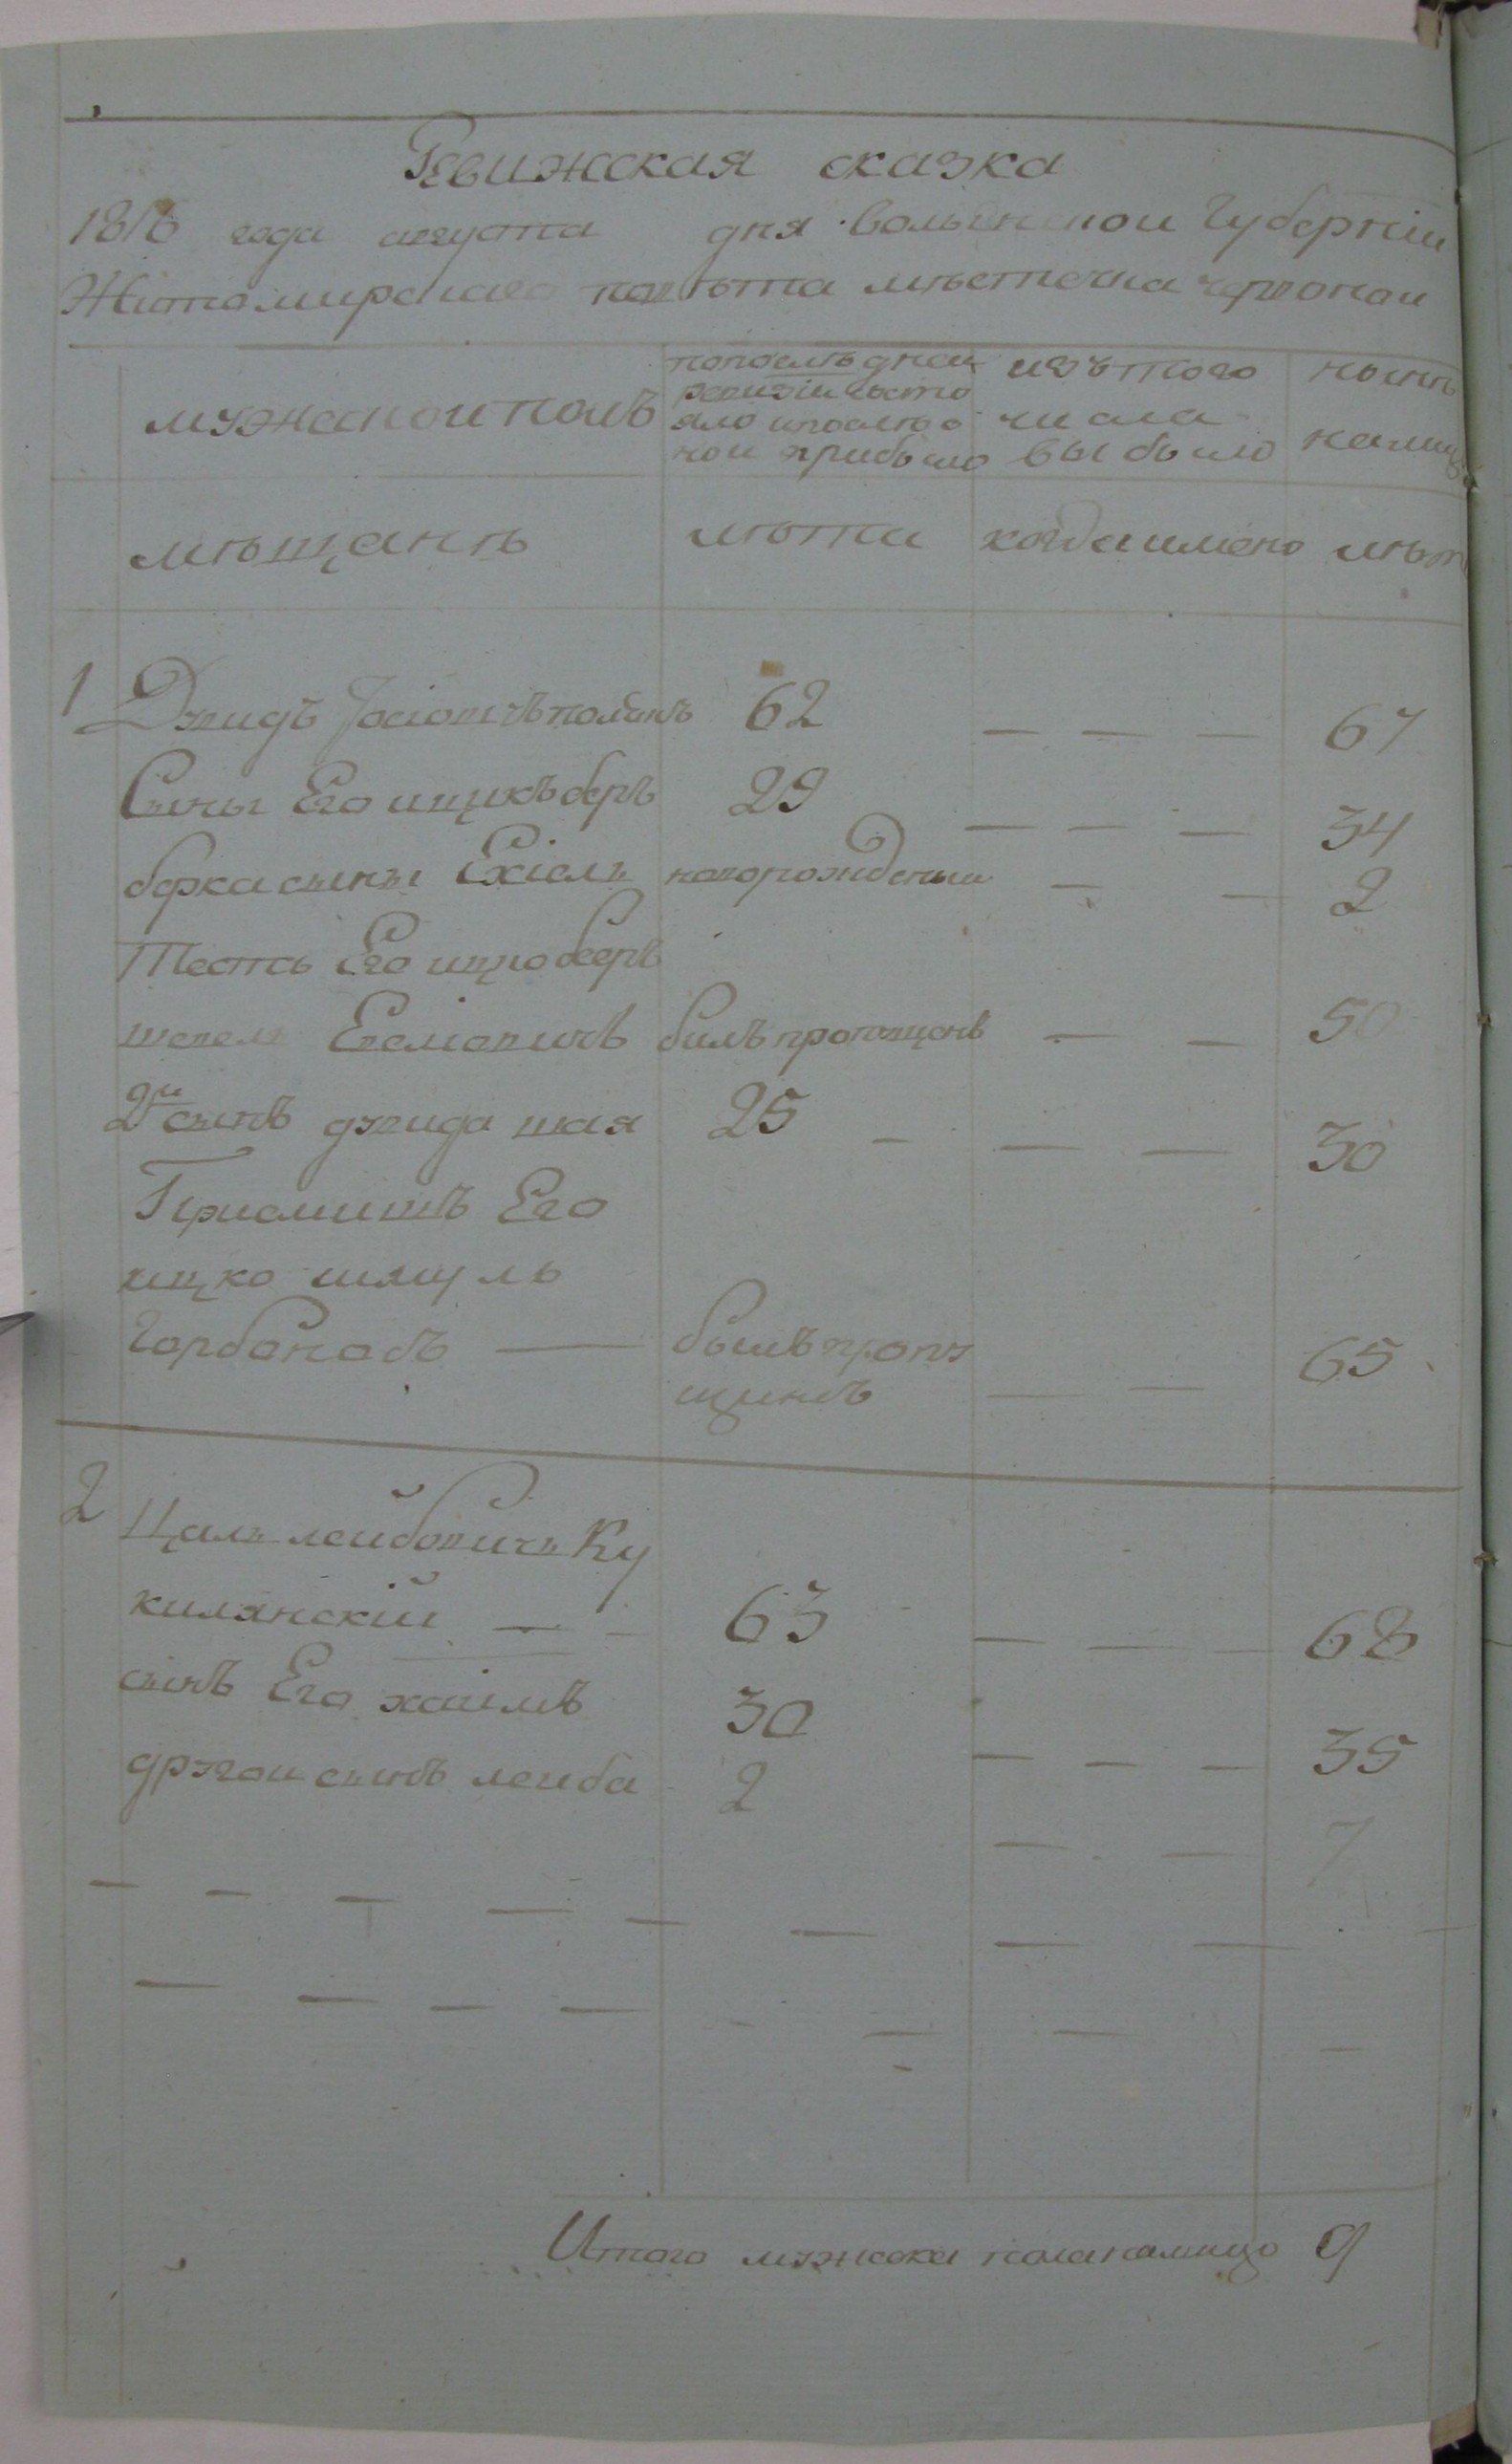 Ревижская сказка
1816 года августа дня волынской Губернiи
Житомирскаго повѣта мѣстечка червонаи
мужескои полъ
попослѣднеи
ревизiи состо
яло и после о
ной прибыло
изъ того
числа
выбыло
нынѣ
налиц
мѣщанъ лѣта когда имено лѣт
1 Двидъ Iосiовичъ 62 — — — 67
Сыны Его ицикъ беръ 29 — — — 34
берка сынъ Ехiель новорожденыи — — 2
Тесть Его ицко беръ
Евсiовичъ билъ пропущенъ — — 50
2й сынъ двида шая 25 — — — 30
Приемишъ Его
ицко шмуль
Горбановъ — былъ пропу
щинъ — — 65
2 Цаль лейбовичъ Ку
килянскiй — — 63 — — — 68
сынъ Его хаимъ 30 — — — 35
другои сынъ леиба 2 — — 7
Итого мужска пола налицо 9